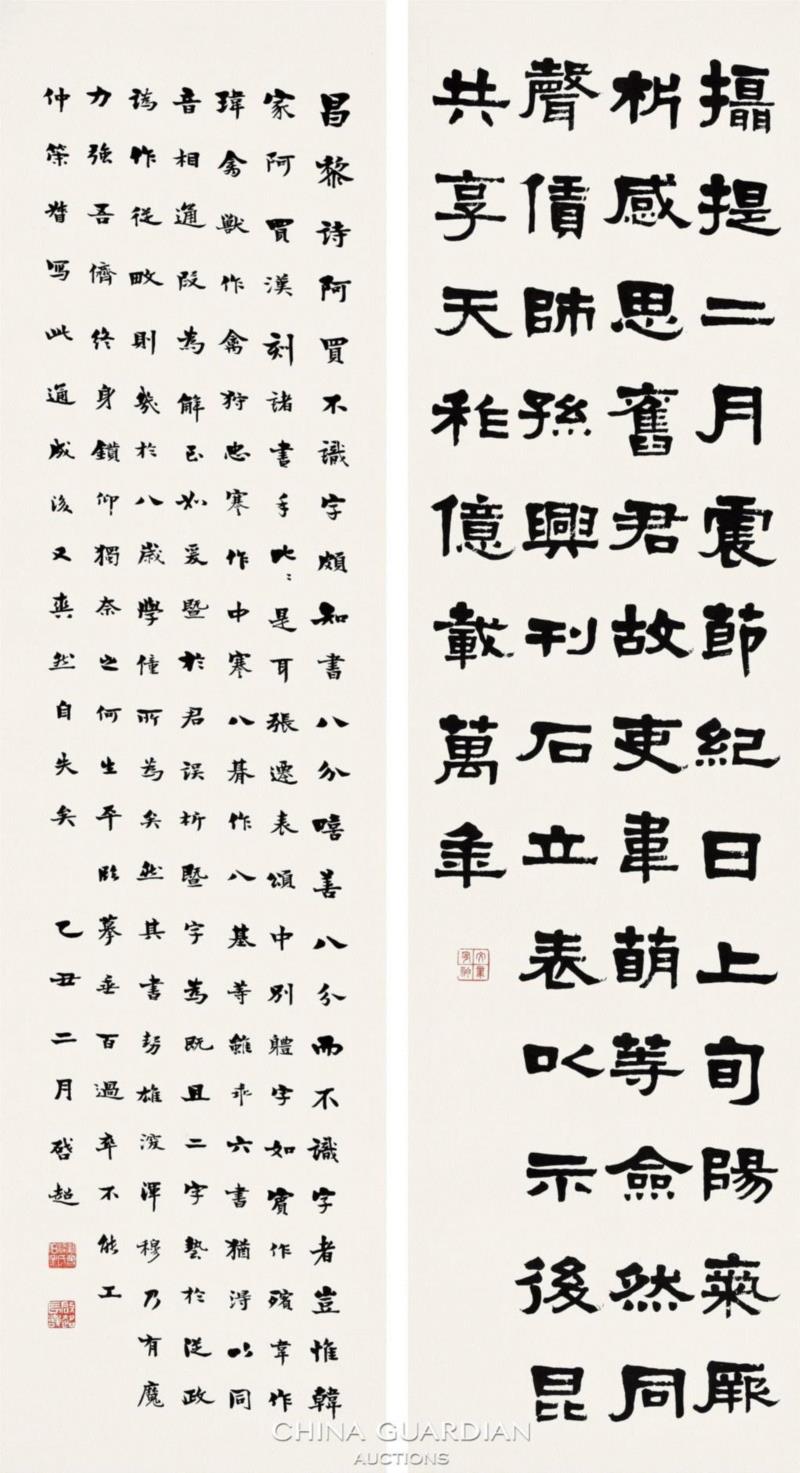 攝提二月震節紀日上旬陽氣厥
析感思舊君故吏韋萌等僉然同
聲賃師孫興刊石立表以示後昆
共享天祚億載萬年
昌黎詩阿買不識字頗知書八分嘻善八分而不識字者豈惟韓
家阿買漢刻諸書手比比是耳張遷表頌中別體字如賓作殯韋作
瑋禽獸作禽狩忠寒作中寒八朞作八基等雖乖六書猶得以同
音相通叚為解至如爰暨於君误析暨字為既且二字藝於從政
譌作從畋則幾於八歲學僮所為矣然其書勢雄深渾穆乃有魔
力強吾儕終身鑽仰獨奈之何生平臨摹垂百過卒不能工
仲策督寫此通成後又爽然自失矣 乙丑二月啟超
CHINA GUARDIAN
AUCTIONS